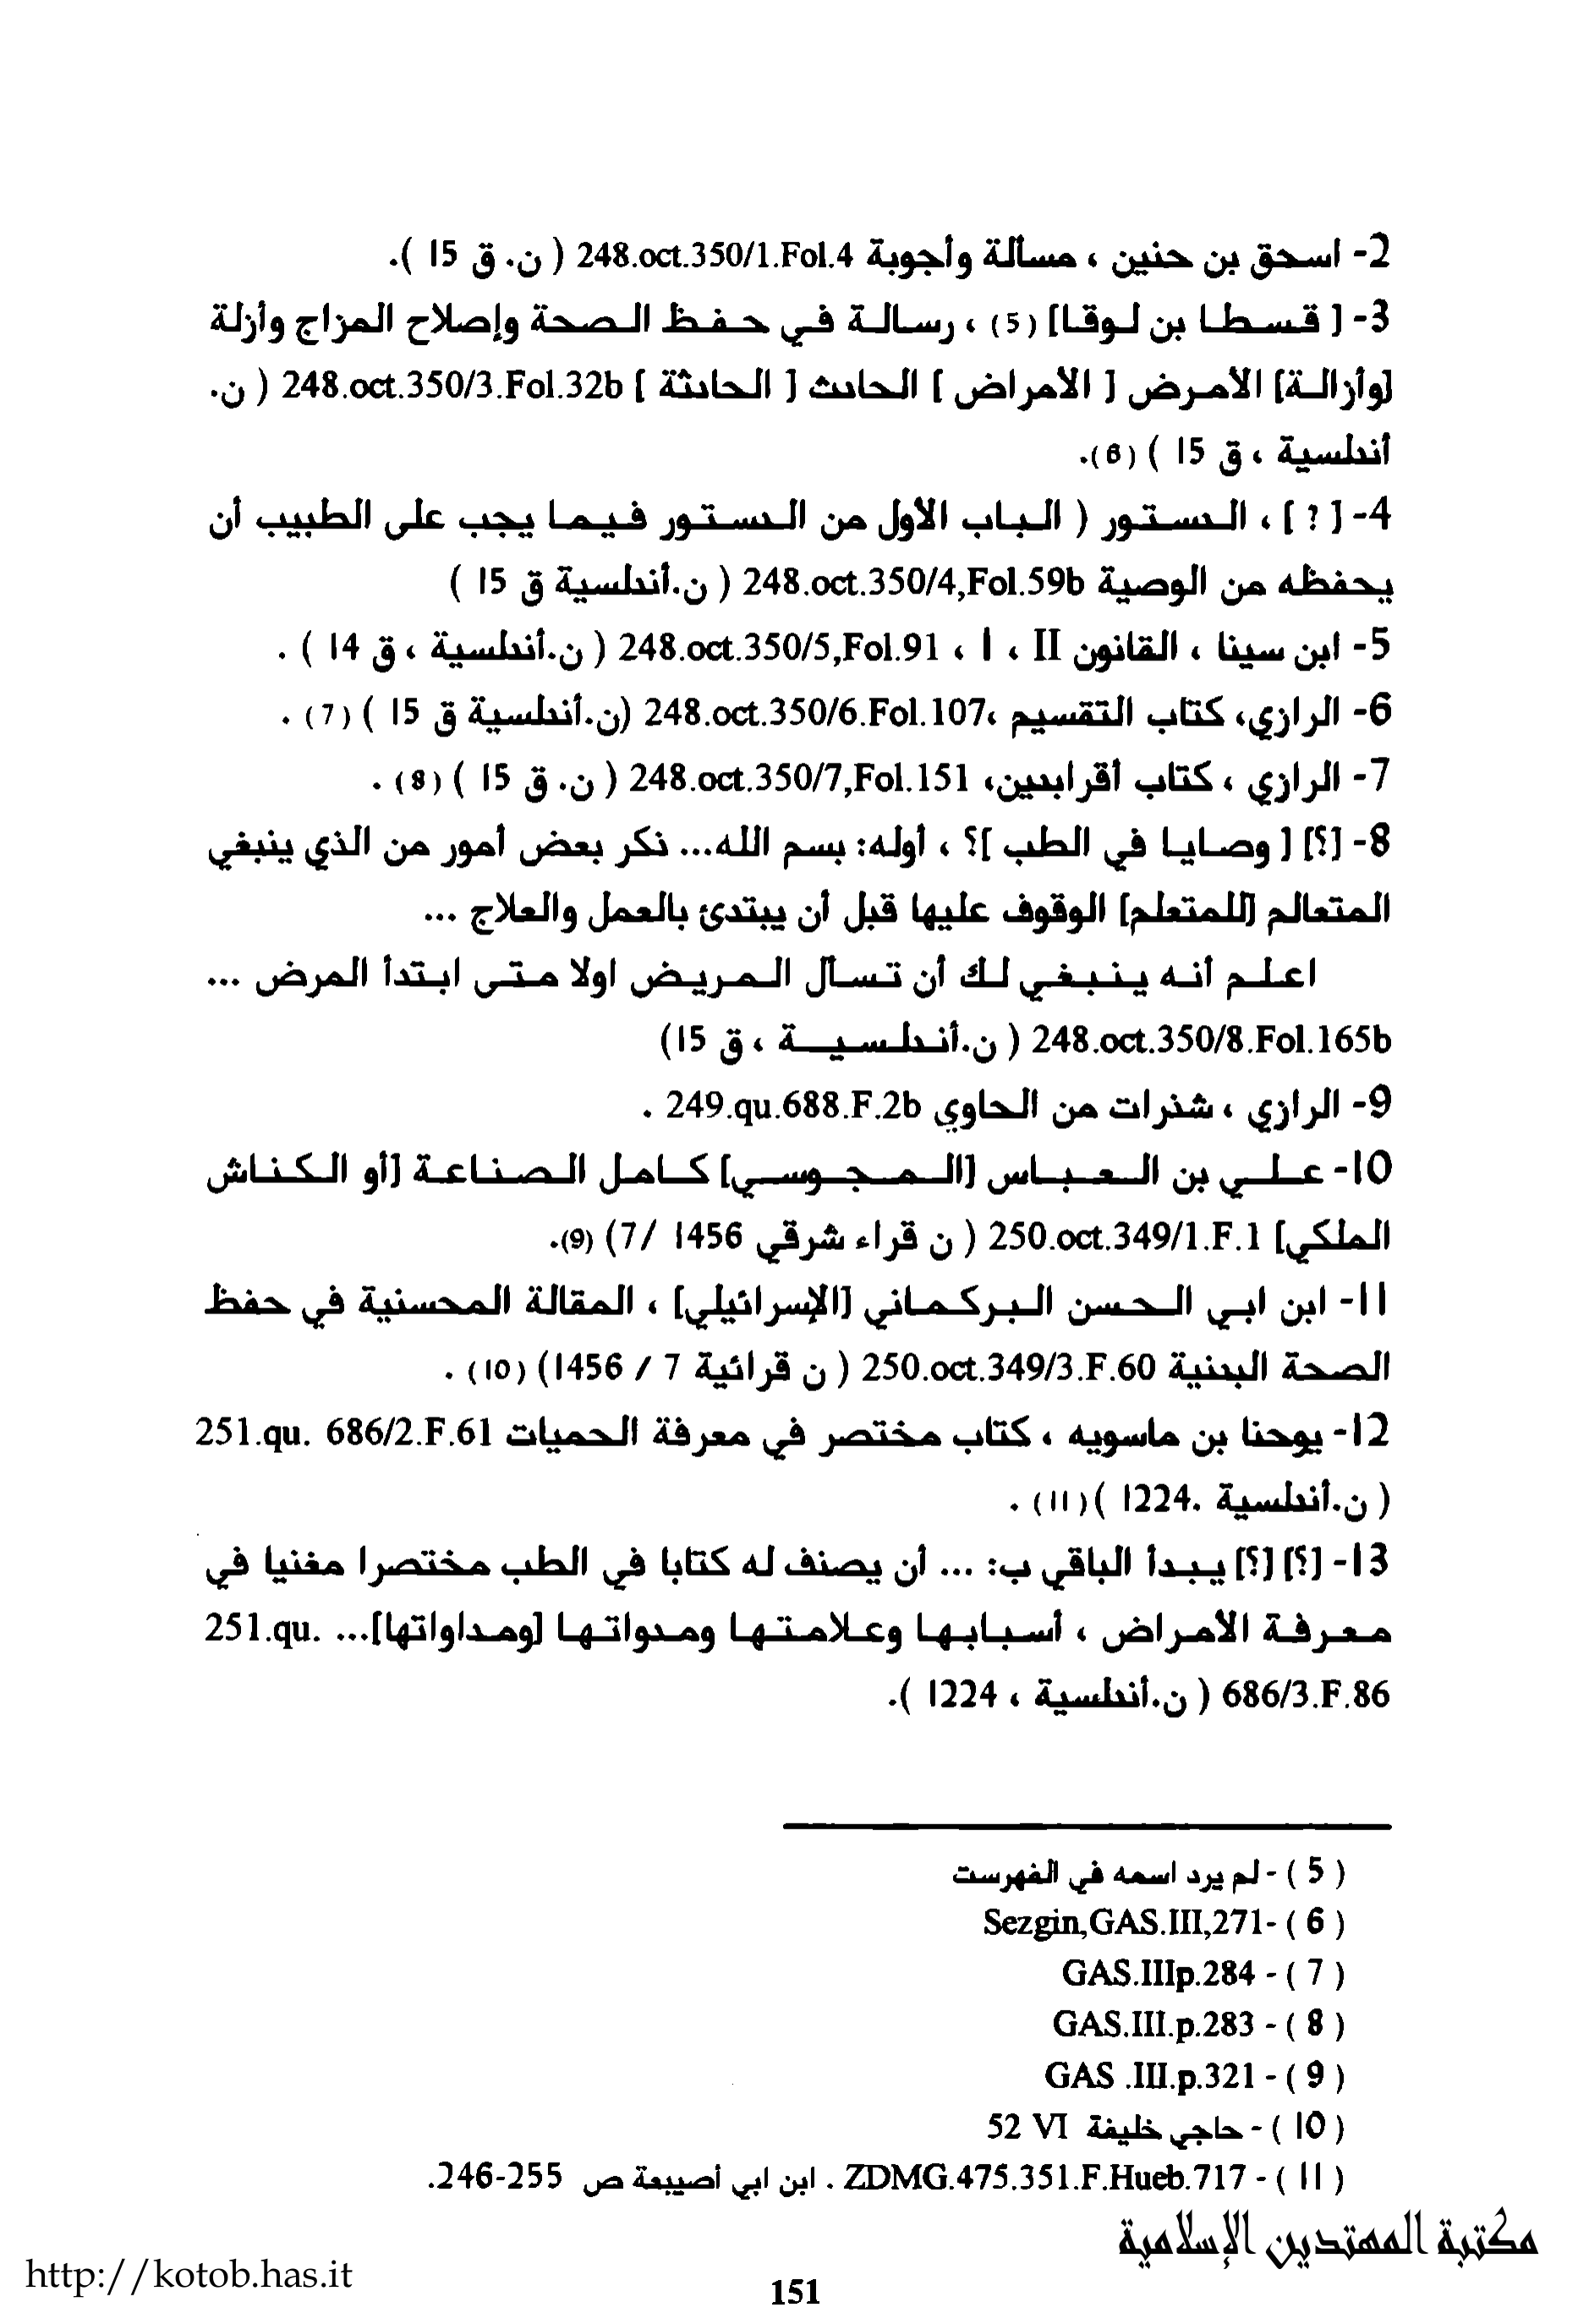 2- اسحق بن حنين ، مسألة وأجوبة 248.oct.350/1.Fol.4 ( ن. ق 15 ).
3- [ قسطا بن لوقا] (5) ، رسالة في حفظ الصحة وإصلاح المزاج وأزلة
[وأزالة] الأمرض [ الأمراض ] الحادث [ الحادثة ] 248.oct.350/3.Fol.32b ( ن.
أندلسية ، ق 15 ) (6).
4- [ ? ] ، الدستور ( الباب الأول من الدستور فيما يجب على الطبيب أن
يحفظه من الوصية 248.oct.350/4,Fol.59b ( ن.أندلسية ق 15 )
5- ابن سينا ، القانون II ، I ، 248.oct.350/5,Fol.91 ( ن.أندلسية ، ق 14 ) .
6- الرازي، كتاب التقسيم ،248.oct.350/6.Fol.107 (ن.أندلسية ق 15 ) (7) .
7- الرازي ، كتاب أقرابدين، 248.oct.350/7,Fol.151 ( ن. ق 15 ) (8) .
8- [؟] [ وصايا في الطب ]؟ ، أوله: بسم الله... ذكر بعض أمور من الذي ينبغي
المتعالم [للمتعلم] الوقوف عليها قبل أن يبتدئ بالعمل والعلاج ...
اعلم أنه ينبغي لك أن تسأل المريض اولا متى ابتدأ المرض ...
248.oct.350/8.Fol.165b ( ن.أندلسية ، ق 15)
9- الرازي ، شذرات من الحاوي 249.qu.688.F.2b .
10- علي بن العباس [المجوسي] كامل الصناعة [أو الكناش
الملكي] 250.oct.349/1.F.1 ( ن قراء شرقي 1456 /7) (9).
11- ابن ابي الحسن البركماني [الإسرائيلي] ، المقالة المحسنية في حفظ
الصحة البدنية 250.oct.349/3.F.60 ( ن قرائية 7 / 1456) (10) .
12- يوحنا بن ماسويه ، كتاب مختصر في معرفة الحميات 251.qu. 686/2.F.61
( ن.أندلسية .1224 ) (11) .
13- [؟] [؟] يبدأ الباقي ب: ... أن يصنف له كتابا في الطب مختصرا مغنيا في
معرفة الأمراض ، أسبابها وعلامتها ومدواتها [ومداواتها]... 251.qu.
686/3.F.86 ( ن.أندلسية ، 1224 ).
( 5 ) - لم يرد اسمه في الفهرست
( 6 ) -Sezgin,GAS.III,271
( 7 ) - GAS.IIIp.284
( 8 ) - GAS.III.p.283
( 9 ) - GAS .III.p.321
( 10 ) - حاجي خليفة VI 52
( 11 ) - ZDMG.475.351.F.Hueb.717 . ابن ابي أصيبعة ص 255-246.
مكتبة المهتدين الإسلامية
http://kotob.has.it
151